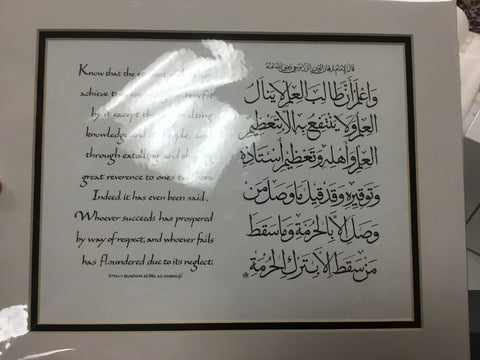 Know that the student
achieve benefit
by it except
knowledge and
through extolling and
great reverence to one's
Indeed, it has even been said,
Whoever succeeds has prospered
by way of respect, and whoever fails
has floundered due to its neglect.
قال الإمام برهان الدين الزرنوجي رضي الله عنه
واعلم أن طالب العلم لا ينال
العلم ولا ينتفع به إلا بتعظيم
العلم وأهله وتعظيم أستاذه
وتوقيره وقد قيل ما وصل من
وصل إلا بالحرمة وما سقط
من سقط إلا بترك الحرمة